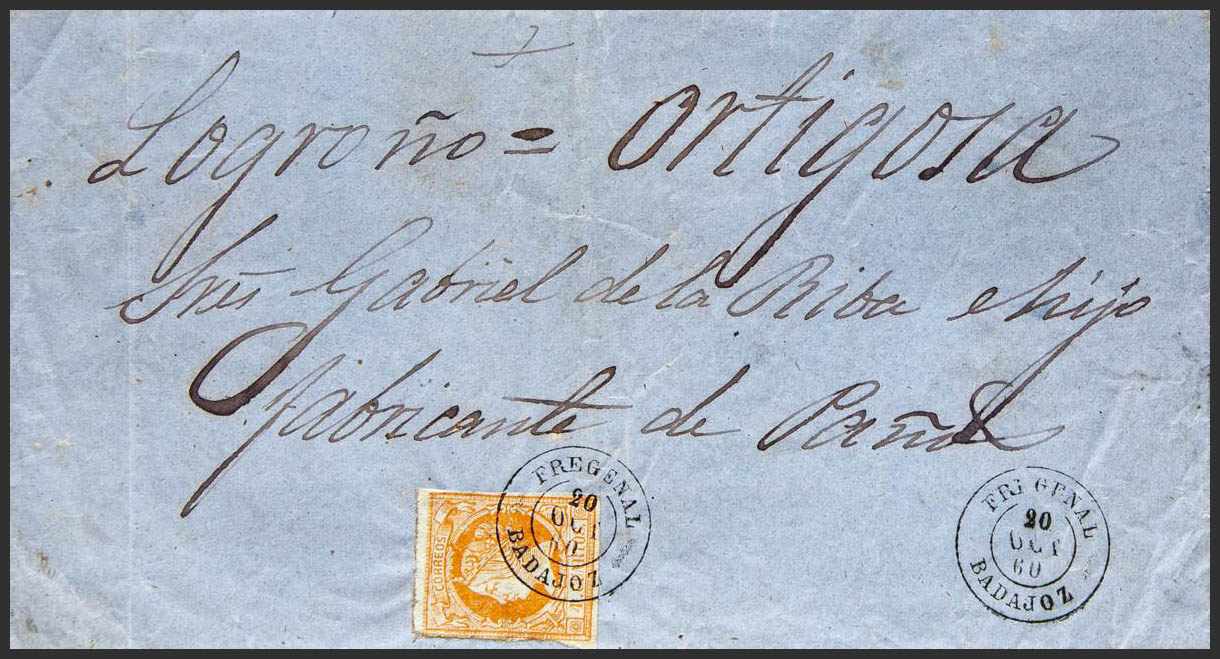 Logroño = Ortigosa
Sres Gabriel de la Riba e hijo
fabricante de Paños
FREGENAL
20
OCT
60
BADAJOZ
CORREOS
FREGENAL
20
OCT
60
BADAJOZ